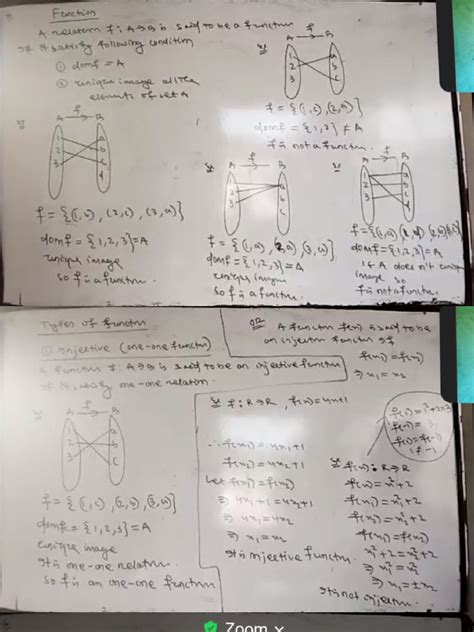 Function
A relation f: A→B is said to be a function
If it satisfy following condition
① domf = A
② unique image all the
elements of set A
Ex
A f B
1
2
3
a
b
c
d
f = {(1,c), (2,c), (3,a)}
domf = {1,2,3} = A
unique image
so f is a function
Ex
A f B
1
2
3
a
b
c
f = {(1,c), (2,a)}
domf = {1,2} ≠ A
f is not a function.
Ex
A f B
1
2
3
a
b
c
f = {(1,a), (2,a), (3,a)}
domf = {1,2,3} = A
unique image
so f is a function.
Ex
A f B
domf = {1,2,3} = A
1 ∈ A does not unique
image so
f is not a function
Types of function
① Injective (one-one function)
A function f: A→B is said to be an injective function
If it satisfy one-one relation.
Ex
A f B
1
2
3
a
b
c
domf = {1,2,3} = A
unique image
It is one-one relation
so f is an one-one function
OR
A function f(x) is said to be
an injective function if
f(x₁) = f(x₂)
⇒ x₁ = x₂
Ex f: R→R, f(x) = 4x+1
∴ f(x₁) = 4x₁+1
f(x₂) = 4x₂+1
let f(x₁) = f(x₂)
⇒ 4x₁+1 = 4x₂+1
⇒ 4x₁ = 4x₂
⇒ x₁ = x₂
It is injective function.
f(1) = 1²+2 = 3
f(-1) = 3
f(1) = f(-1)
1 ≠ -1
Ex f(x): R→R
f(x) = x²+2
f(x₁) = x₁²+2
f(x₂) = x₂²+2
f(x₁) = f(x₂)
⇒ x₁²+2 = x₂²+2
⇒ x₁² = x₂²
⇒ x₁ = ±x₂
It is not injective.
Zoom